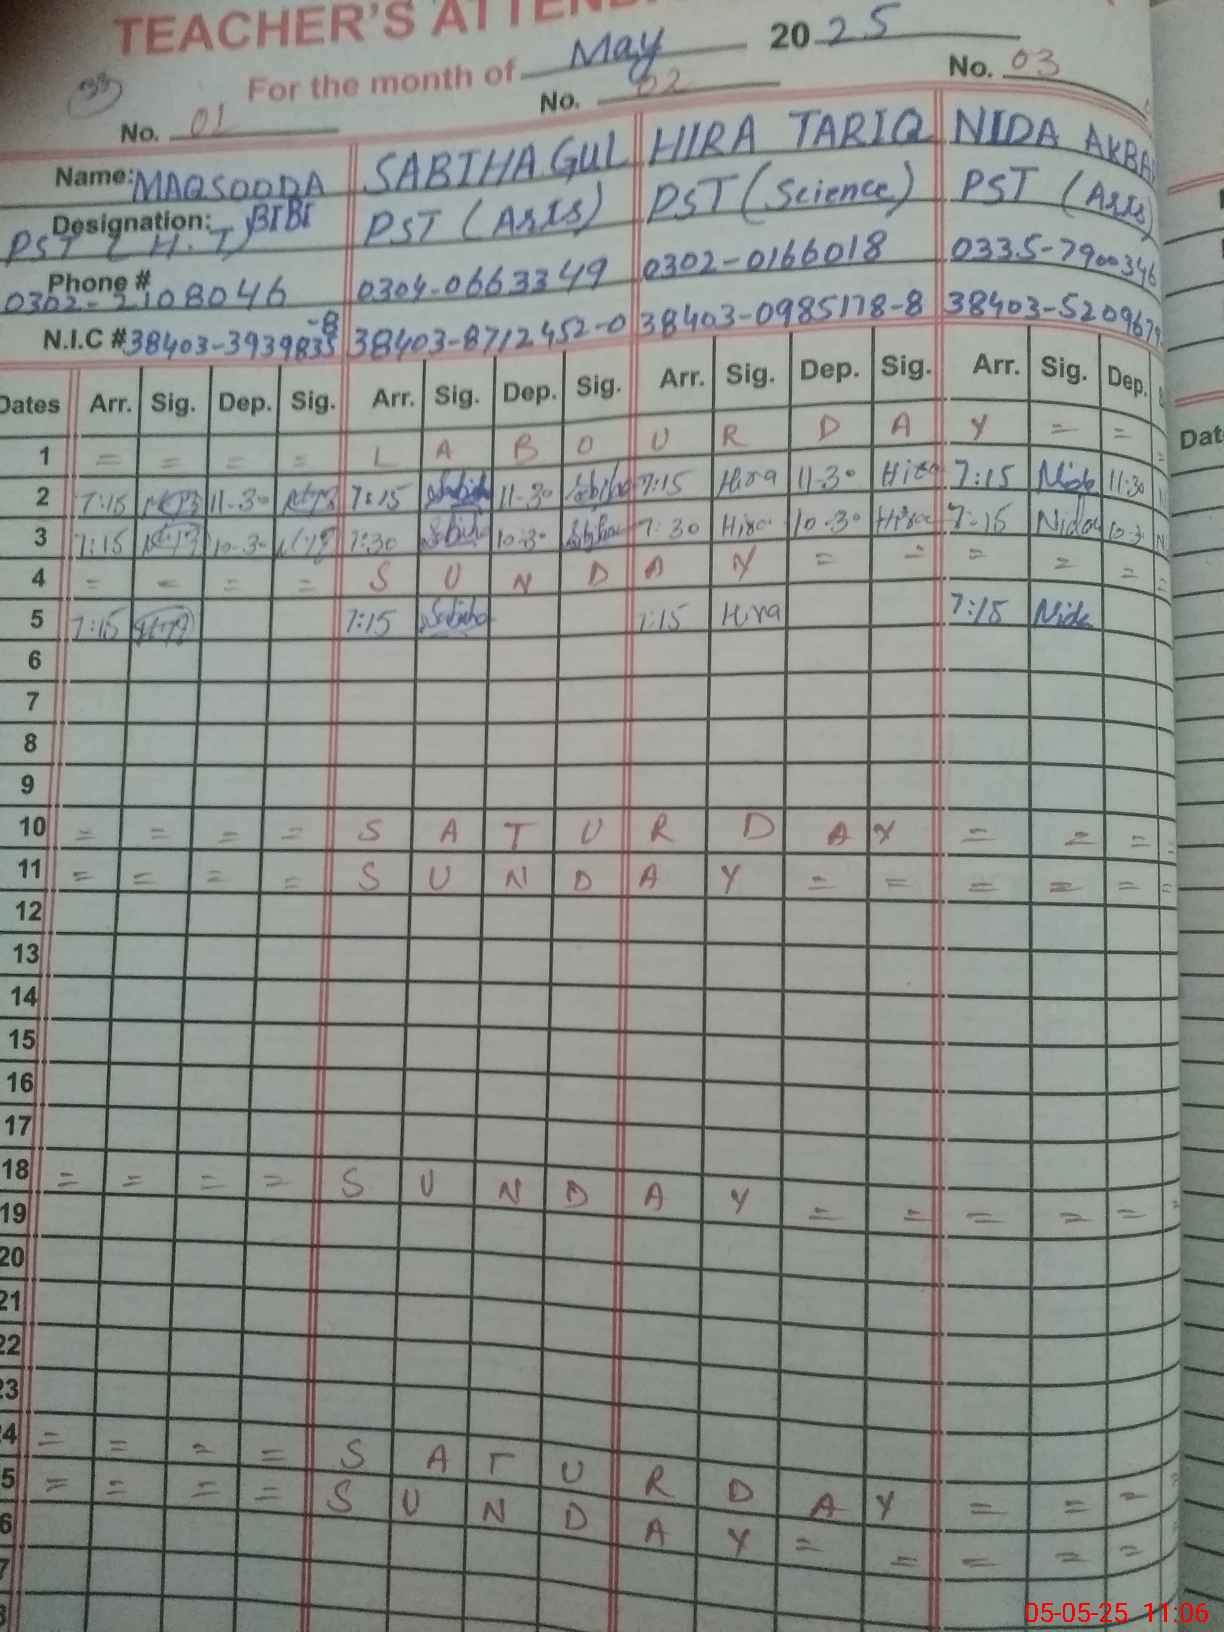 TEACHER'S ATTEND
For the month of May 2025
33
No. 01 No. 02 No. 03
Name: MAQSOODA BIBI SABIHA GUL HIRA TARIQ NIDA AKBA
Designation: PST (H.T) PST (Arts) PST (Science) PST (Arts)
Phone # 0302-2108046 0304-0663349 0302-0166018 0335-7900346
N.I.C # 38403-3939835-8 38403-8712452-0 38403-0985178-8 38403-5209679
Dates Arr. Sig. Dep. Sig. Arr. Sig. Dep. Sig. Arr. Sig. Dep. Sig. Arr. Sig. Dep.
Dat
1 = = = = L A B O U R D A Y = = =
2 7:15 11-30 7:15 Sabiha 11-30 Sabiha 7:15 Hira 11-30 Hira 7:15 Nida 11-30
3 7:15 10-30 7:30 Sabiha 10-30 Sabiha 7:30 Hira 10-30 Hira 7:15 Nida 10-3
4 = = = = S U N D A Y = = = = = =
5 7:15 7:15 Sabiha 7:15 Hira 7:15 Nida
6
7
8
9
10 = = = = S A T U R D A Y = = = =
11 = = = = S U N D A Y = = = = = =
12
13
14
15
16
17
18 = = = = S U N D A Y = = = = = =
19
20
21
22
23
4 = = = = S A T U R D A Y = = = =
5 = = = = S U N D A Y = = = = =
6
7
8
05-05-25 11:06